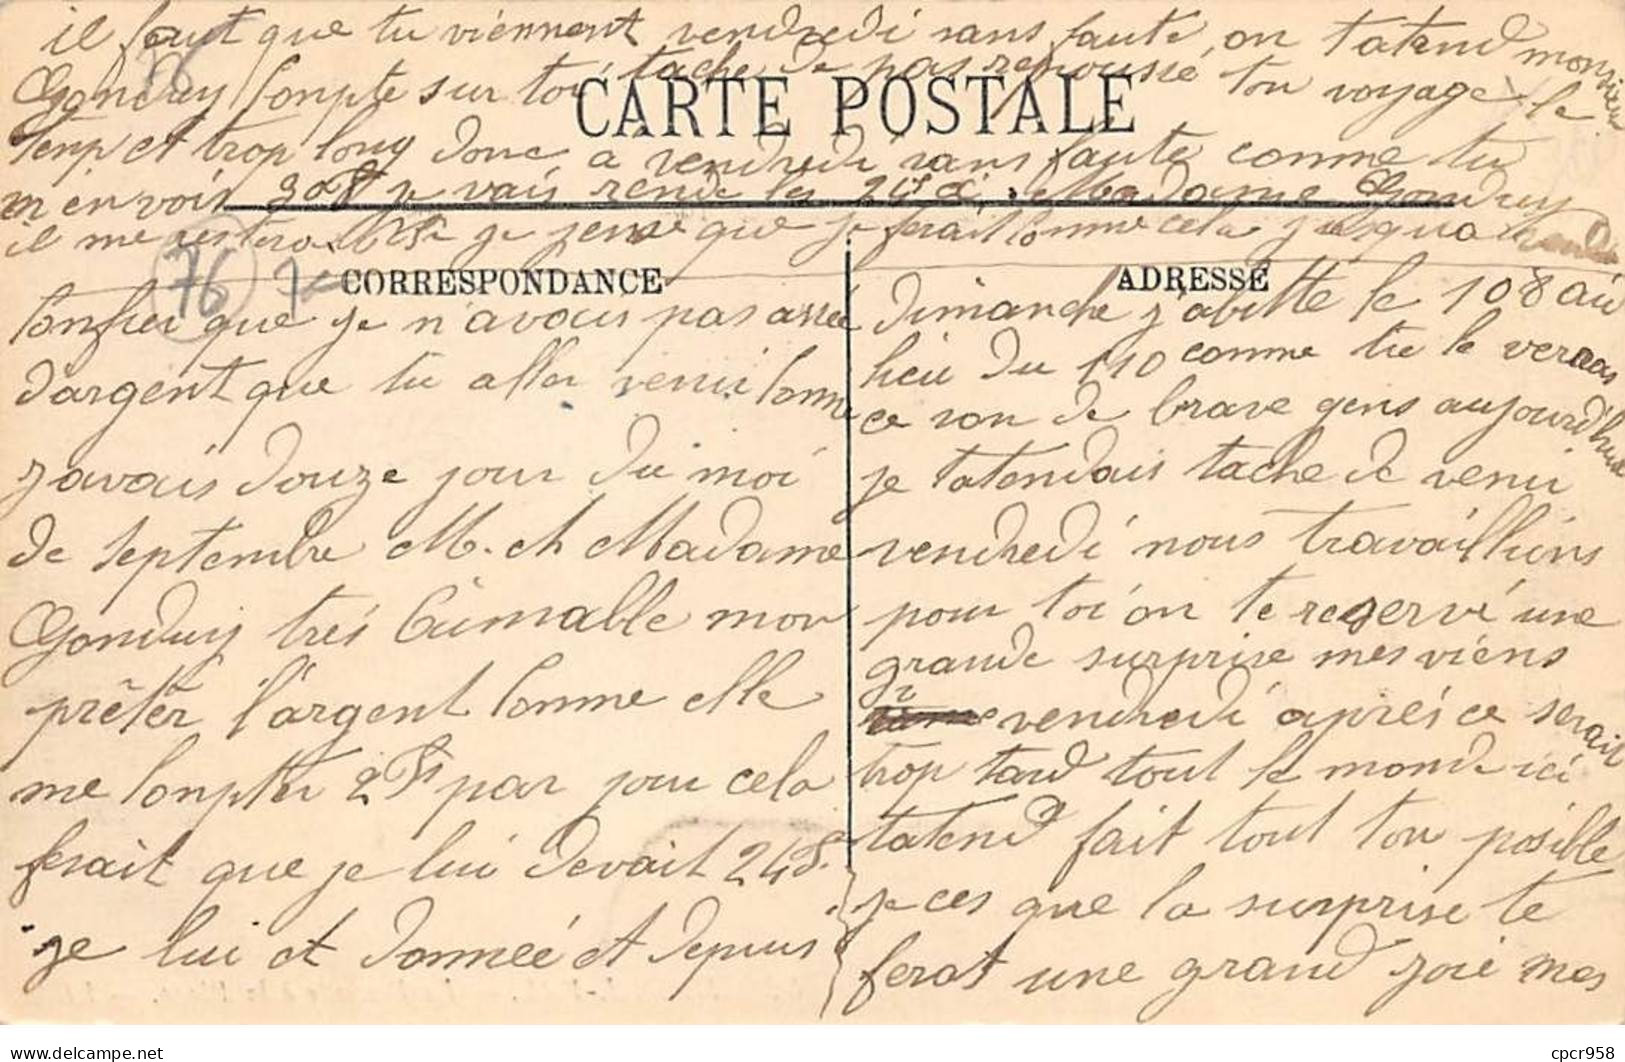 il faut que tu viennent vendredi sans faute, on tatend monsieur
Gondry conpte sur toi tache de pas repoussé ton voyage le
tenp et trop long donc a vendredi sans faute comme tu
m'en vois 30f je vais rende les 24f à Madame Gondry
il me restera 6f je pense que je ferait comme cela jusqua
CARTE POSTALE
76
76
CORRESPONDANCE
que je n'avais pas assé
d'argent que tu aller venir comme
j'avais douze jour du moi
de septembre M. et Madame
Gondry très aimable mon
prêtèr l'argent comme elle
me conpter 2f par jour cela
ferait que je lui devait 24f.
je lui et donneé et depuis
ADRESSE
dimanche j'abitte le 108 au
lieu du 110 comme tu le verras
ce son de brave gens aujourd'hui
je tatendais tache de venir
vendredi nous travaillions
pour toi on te reservé une
grande surprise mes viens
vendredi après ce serait
trop tard tout le monde ici
tatend fait tout ton posille
je ces que la surprise te
ferat une grand joie mes
cpcr958